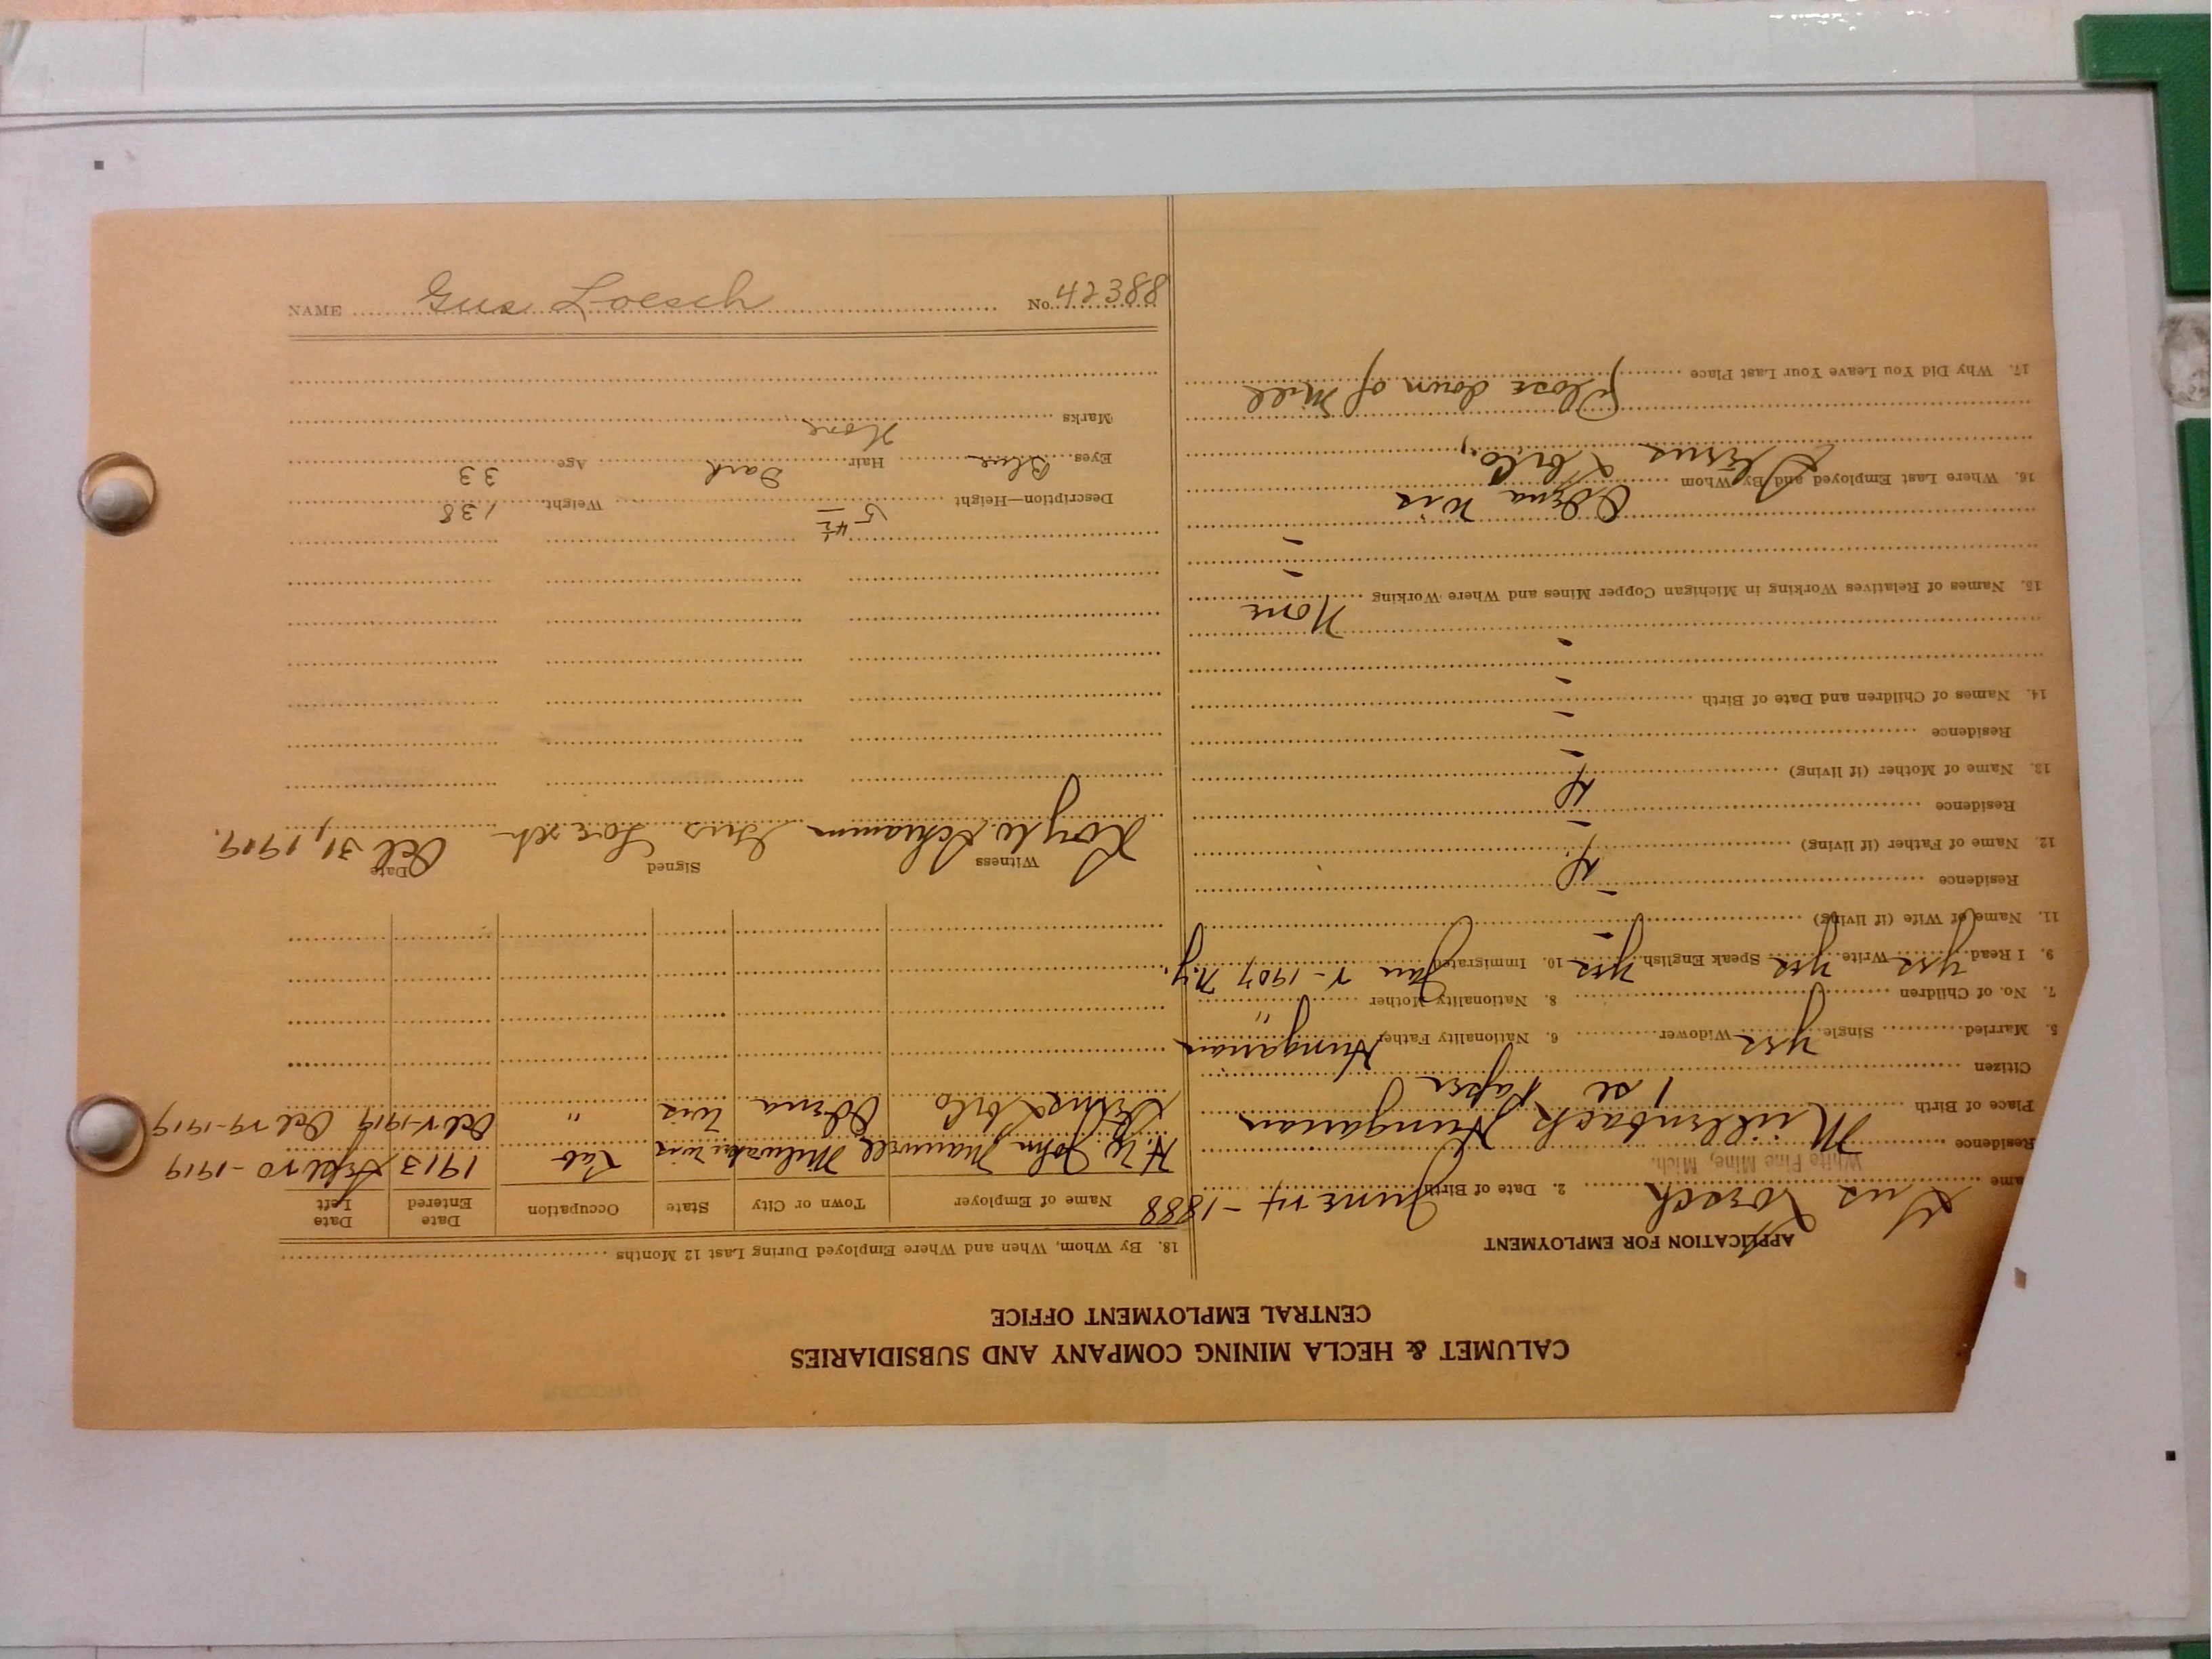 CALUMET & HECLA MINING COMPANY AND SUBSIDIARIES
CENTRAL EMPLOYMENT OFFICE
APPLICATION FOR EMPLOYMENT
ame Gus Loesch 2. Date of Birth June 24 - 1888
White Pine Mine, Mich.
Residence
Place of Birth Muilenbach Hungarian
Citizen 1 st Paper
5. Married Single yes Widower 6. Nationality Father Hungarian
7. No. of Children 8. Nationality Mother "
9. I Read yes Write yes Speak English yes 10. Immigrated Jan 2-1907 N.Y.
11. Name of Wife (if living) -
Residence -
12. Name of Father (if living) D.
Residence -
13. Name of Mother (if living) D
Residence -
14. Names of Children and Date of Birth -
-
-
15. Names of Relatives Working in Michigan Copper Mines and Where Working None
-
-
16. Where Last Employed and By Whom Odena Wis
& Co.,
17. Why Did You Leave Your Last Place Close down of Mill
18. By Whom, When and Where Employed During Last 12 Months
Name of Employer Town or City State Occupation Date Entered Date Left
H.W. John Manville Milwakee Wis Lab 1913 Sept 20-1919
& Co Odena Wis " Oct 2-1919 Oct 29-1919
Witness Signed Date
Roy W. Schramm Gus Loesch Oct 31, 1919.
Description—Height 5 4½ Weight 138
Eyes Blue Hair Dark Age 33
Marks None
NAME Gus Loesch No. 42388